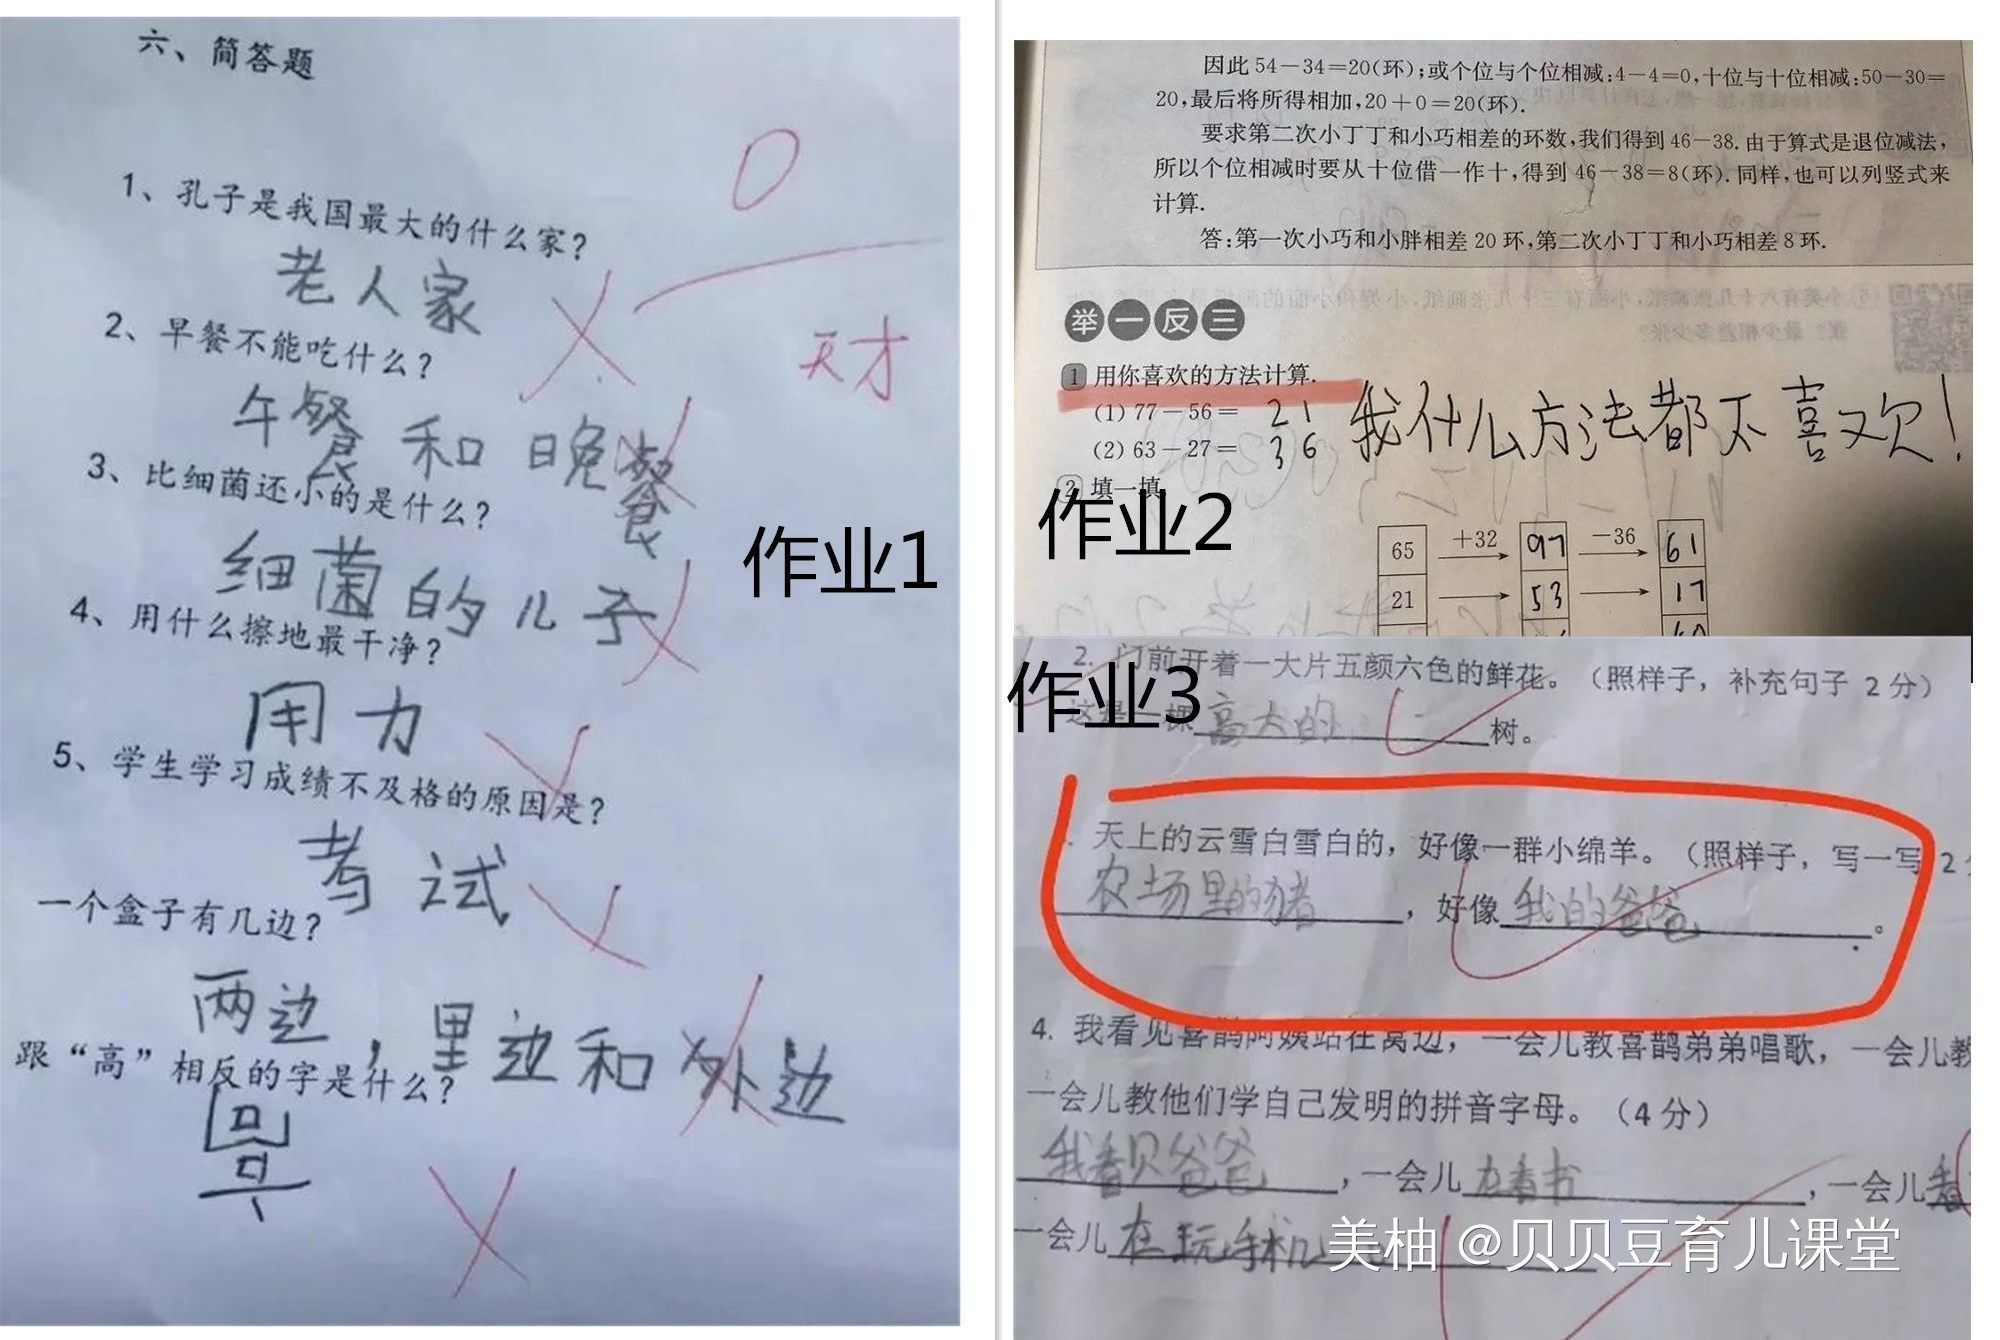 六、简答题
0
天才
1、孔子是我国最大的什么家？
老人家
2、早餐不能吃什么？
午餐和晚餐
3、比细菌还小的是什么？
细菌的儿子
4、用什么擦地最干净？
用力
5、学生学习成绩不及格的原因是？
考试
一个盒子有几边？
两边，里边和外边
跟“高”相反的字是什么？
作业1
因此54－34＝20(环)；或个位与个位相减：4－4＝0，十位与十位相减：50－30＝
20，最后将所得相加，20＋0＝20(环).
要求第二次小丁丁和小巧相差的环数，我们得到46－38. 由于算式是退位减法，
所以个位相减时要从十位借一作十，得到46－38＝8(环). 同样，也可以列竖式来
计算.
答：第一次小巧和小胖相差20环，第二次小丁丁和小巧相差8环.
举一反三
1 用你喜欢的方法计算.
(1) 77－56＝ 21
(2) 63－27＝ 36
我什么方法都不喜欢！
2 填一填
作业2
65 ＋32 97 －36 61
21 53 17
作业3
2. 门前开着一大片五颜六色的鲜花。（照样子，补充句子 2分）
这是一棵高大的树。
天上的云雪白雪白的，好像一群小绵羊。（照样子，写一写 2
农场里的猪，好像我的爸爸。
4. 我看见喜鹊阿姨站在窝边，一会儿教喜鹊弟弟唱歌，一会儿教
一会儿教他们学自己发明的拼音字母。（4分）
我看贝爸爸，一会儿在看书，一会儿看
一会儿在玩手机
美柚 @贝贝豆育儿课堂